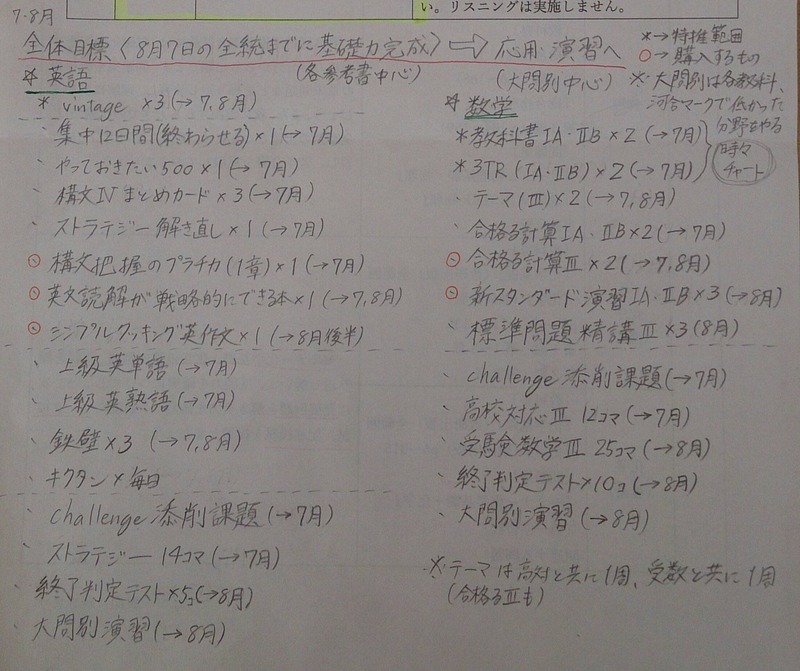 い。リスニングは実施しません。
7・8月
全体目標〈8月7日の全統までに基礎力完成〉⇒ 応用・演習へ
(各参考書中心)
(大問別中心)
*→特推範囲
○→購入するもの
※大問別は各教科、
河合マークで低かった
分野をやる
時々
チャート
☆英語
* vintage ×3(→7,8月)
、集中12日間(終わらせる)×1(→7月)
、やっておきたい500×1(→7月)
、構文Ⅳまとめカード×3(→7月)
、ストラテジー解き直し×1(→7月)
○構文把握のプラチカ(1章)×1(→7月)
○英文読解が戦略的にできる本×1(→7,8月)
○シンプルクッキング英作文×1(→8月後半)
、上級英単語(→7月)
、上級英熟語(→7月)
、鉄壁×3 (→7,8月)
、キクタン×毎日
、challenge添削課題(→7月)
、ストラテジー14コマ(→7月)
、終了判定テスト×5コ(→8月)
、大問別演習(→8月)
☆数学
*教科書ⅠA・ⅡB×2(→7月)
*3TR(ⅠA・ⅡB)×2(→7月)
、テーマ(Ⅲ)×2(→7,8月)
、合格る計算ⅠA・ⅡB×2(→7月)
○合格る計算Ⅲ×2(→7,8月)
○新スタンダード演習ⅠA・ⅡB×3(→8月)
、標準問題精講Ⅲ×3(8月)
、challenge添削課題(→7月)
、高校対応Ⅲ 12コマ(→7月)
、受験数学Ⅲ 25コマ(→8月)
、終了判定テスト×10コ(→8月)
、大問別演習(→8月)
※テーマは高対と共に1周、受数と共に1周
(合格るⅢも)